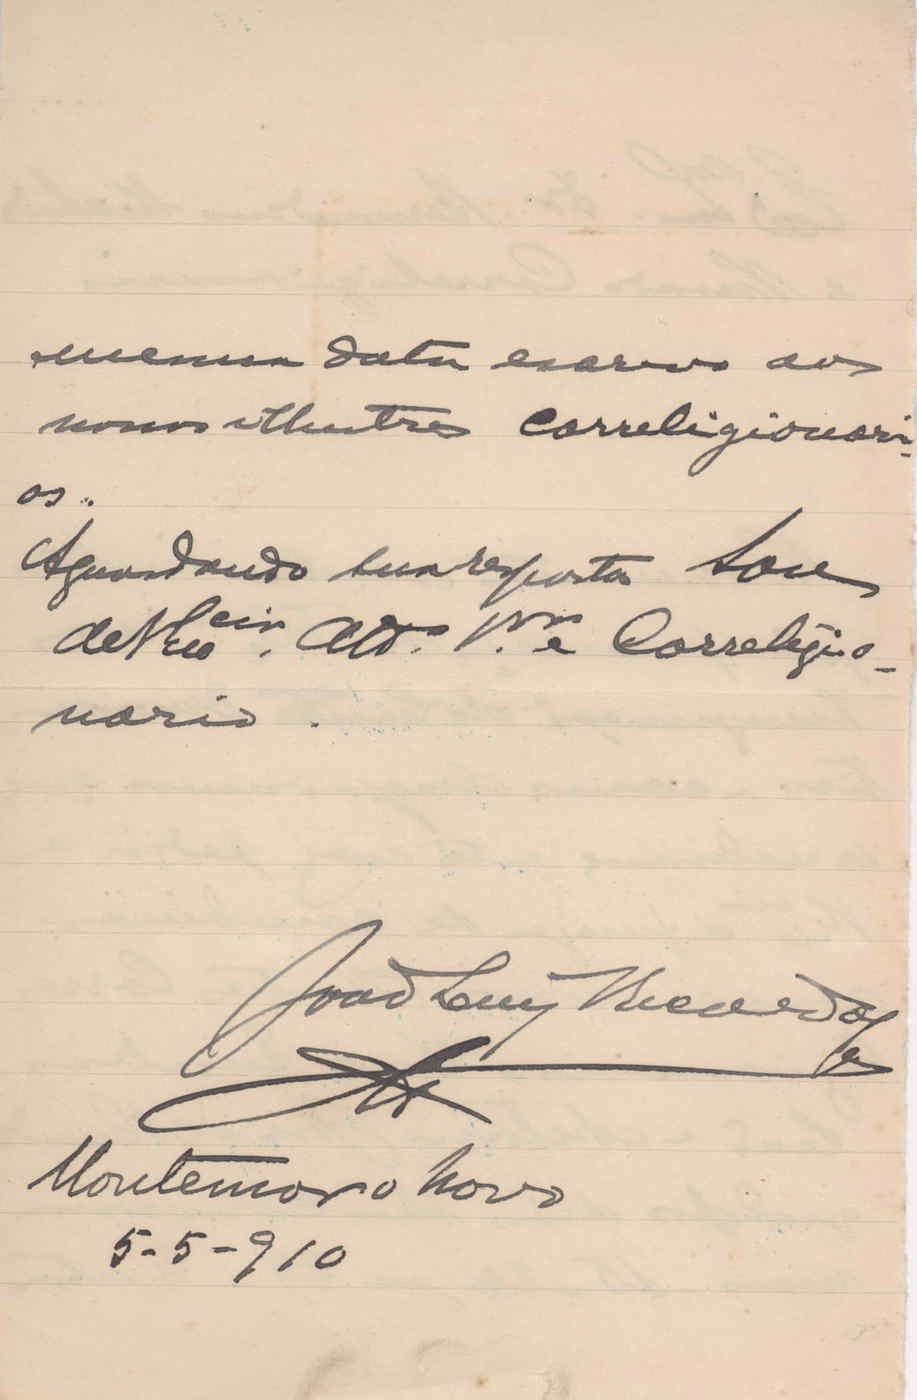 mesma data escrevo aos
nossos illustres correligionari-
os.
Aguardando sua resposta Sou
de V. Ex.cia. Att.º V.or e Correligio-
nario.
João Luiz Ricardo
Montemor o Novo
5-5-910